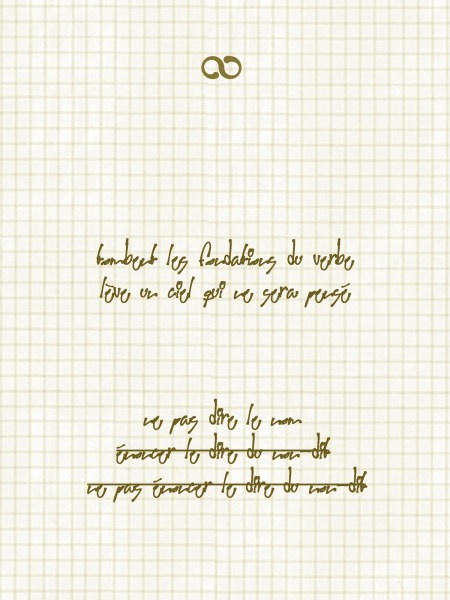 ∞
tombent les fondations du verbe
lève un ciel qui ne sera pensé
ne pas dire le nom
énoncer le dire du non dit
ne pas énoncer le dire du non dit